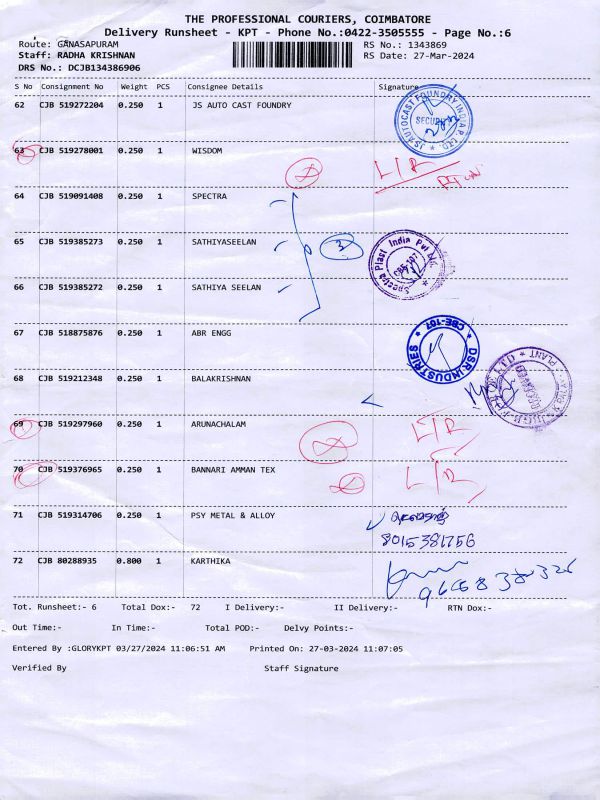 THE PROFESSIONAL COURIERS, COIMBATORE
Delivery Runsheet - KPT - Phone No.:0422-3505555 - Page No.:6
Route: GANASAPURAM
RS No.: 1343869
Staff: RADHA KRISHNAN
RS Date: 27-Mar-2024
DRS No.: DCJB134386906
S No Consignment No Weight PCS Consignee Details Signature
62 CJB 519272204 0.250 1 JS AUTO CAST FOUNDRY
JS AUTOCAST FOUNDRY INDIA P. LTD.
SECURITY
63 CJB 519278001 0.250 1 WISDOM
L/R
64 CJB 519091408 0.250 1 SPECTRA
65 CJB 519385273 0.250 1 SATHIYASEELAN
3
Spectra Plast India Pvt Ltd.
CBE-107
66 CJB 519385272 0.250 1 SATHIYA SEELAN
67 CJB 518875876 0.250 1 ABR ENGG
DSR INDUSTRIES * CBE-107 *
68 CJB 519212348 0.250 1 BALAKRISHNAN
PLANT
69 CJB 519297960 0.250 1 ARUNACHALAM
L/R
70 CJB 519376965 0.250 1 BANNARI AMMAN TEX
L/R
71 CJB 519314706 0.250 1 PSY METAL & ALLOY
8015381756
72 CJB 80288935 0.800 1 KARTHIKA
Tot. Runsheet:- 6 Total Dox:- 72 I Delivery:- II Delivery:- RTN Dox:-
Out Time:- In Time:- Total POD:- Delvy Points:-
Entered By :GLORYKPT 03/27/2024 11:06:51 AM Printed On: 27-03-2024 11:07:05
Verified By Staff Signature